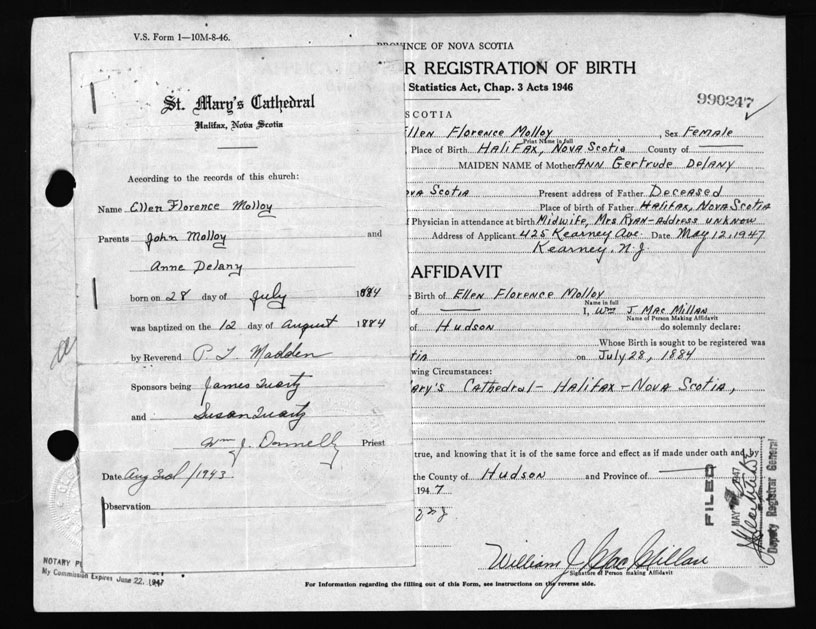 V.S. Form 1—10M-8-46.
St. Mary's Cathedral
Halifax, Nova Scotia
According to the records of this church:
Name Ellen Florence Molloy
Parents John Molloy and
Anne Delany
born on 28 day of July 1884
was baptized on the 12 day of August 1884
by Reverend P Madden
Sponsors being James
and Susan
Wm J. Donnelly Priest
Date Aug 3rd/1943
Observation
NOTARY
My Commission Expires June 22, 1947
PROVINCE OF NOVA SCOTIA
R REGISTRATION OF BIRTH
Statistics Act, Chap. 3 Acts 1946
990247
SCOTIA
Ellen Florence Molloy, Sex Female
Print Name in full
Place of Birth Halifax, Nova Scotia County of
MAIDEN NAME of Mother Ann Gertrude Delany
ova Scotia Present address of Father Deceased
Place of birth of Father Halifax, Nova Scotia
Physician in attendance at birth Midwife, Mrs Ryan - Address unknow
Address of Applicant 425 Kearney Ave. Date May 12, 1947
Kearney, N.J.
AFFIDAVIT
e Birth of Ellen Florence Molloy
Name in full
of I, Wm J. MacMillan
Name of Person Making Affidavit
of Hudson do solemnly declare:
Whose Birth is sought to be registered was
tia on July 28, 1884
wing Circumstances:
ary's Cathedral - Halifax - Nova Scotia,
true, and knowing that it is of the same force and effect as if made under oath and by
the County of Hudson and Province of
1947
William J. MacMillan
Signature of Person making Affidavit
FILED
MAY 1947
Deputy Registrar General
For Information regarding the filling out of this Form, see instructions on the reverse side.